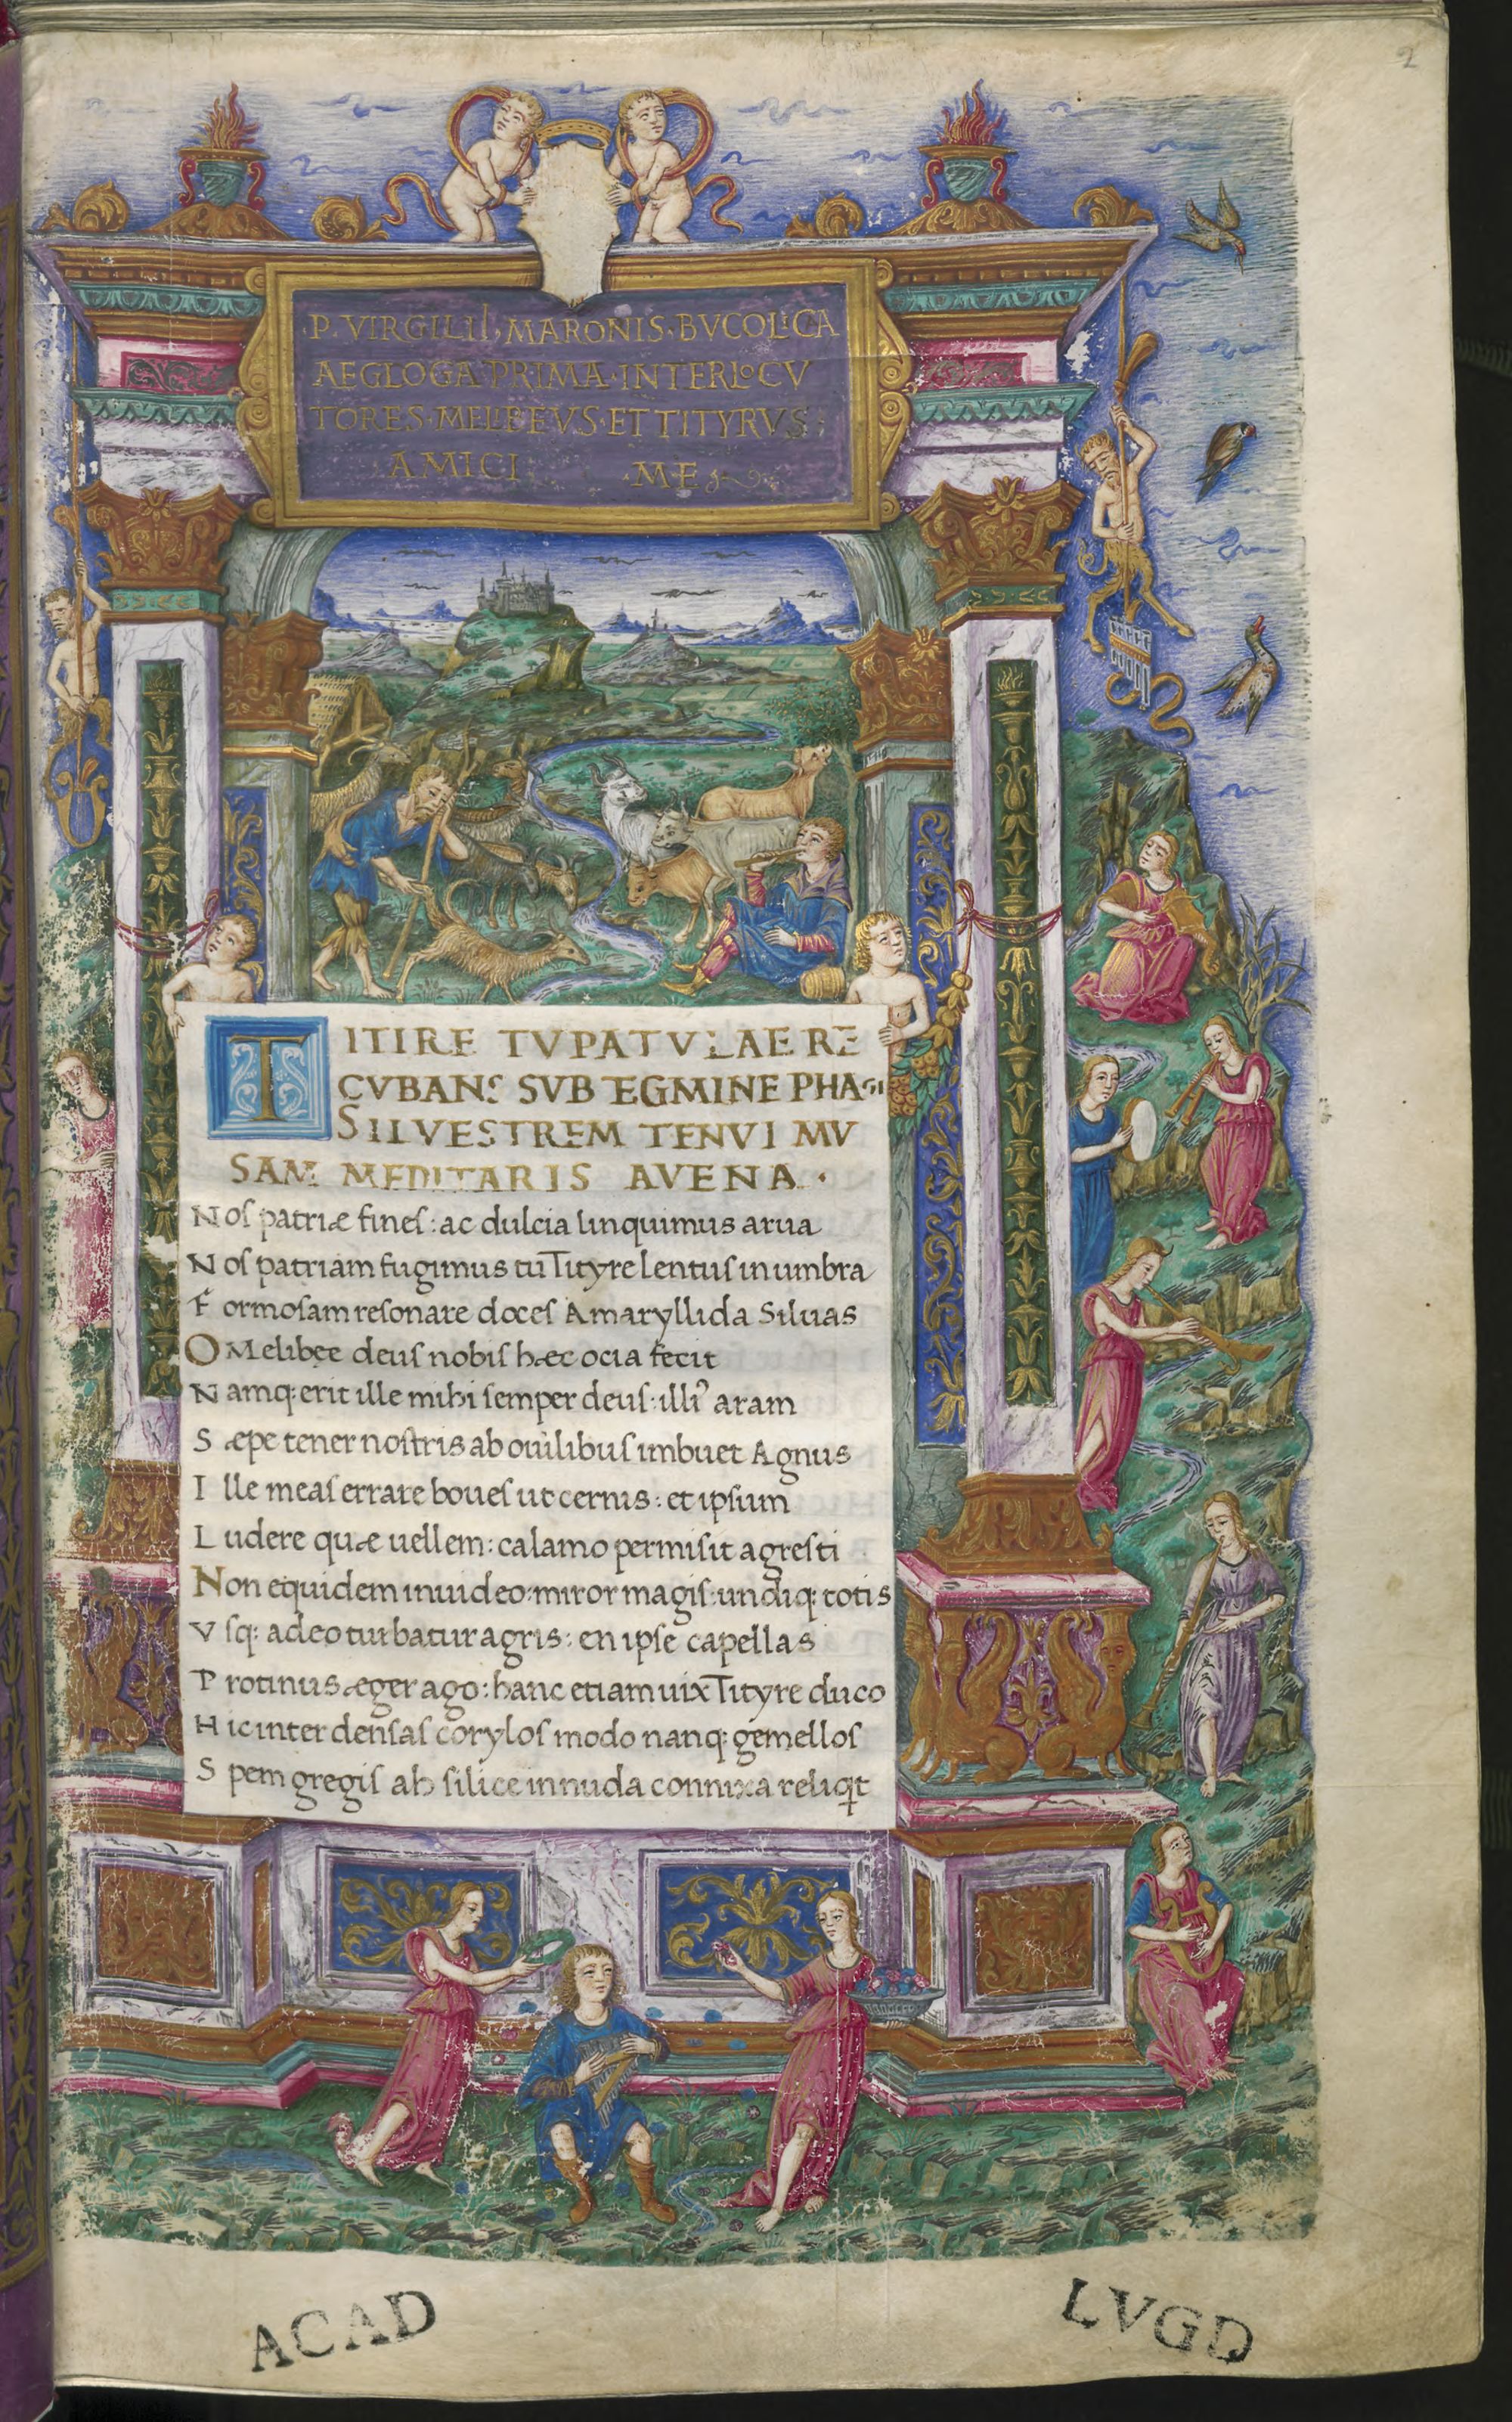 2
P. VIRGILII, MARONIS. BVCOLICA
AEGLOGA PRIMA. INTERLOCV
TORES. MELIBEVS. ET TITYRVS;
AMICI. .ME
TITIRE TVPATVLAE RE
CVBANS SVB TEGMINE PHAGI
SILVESTREM TENVI MV
SAM MEDITARIS AVENA.
Noſ patriæ fineſ: ac dulcia linquimus arua
Noſ patriam fugimus tū Tityre lentuſ in umbra
Formoſam reſonare doceſ Amaryllida Siluas
O Melibęe deuſ nobiſ hæc ocia fecit
Namq: erit ille mihi ſemper deuſ: illi᾽ aram
Sæpe tener noſtris ab ouilibuſ imbuet Agnus
Ille meaſ errare boueſ ut cernis: et ipſum
Ludere quæ uellem: calamo permiſit agreſti
Non equidem inuideo: miror magiſ: undiq: totis
Vſq: adeo turbatur agris: en ipſe capellas
Protinus æger ago: hanc etiam uix Tityre duco
Hic inter denſaſ coryloſ modo nanq: gemelloſ
Spem gregiſ ah ſilice in nuda connixa reliqt
ACAD LVGD